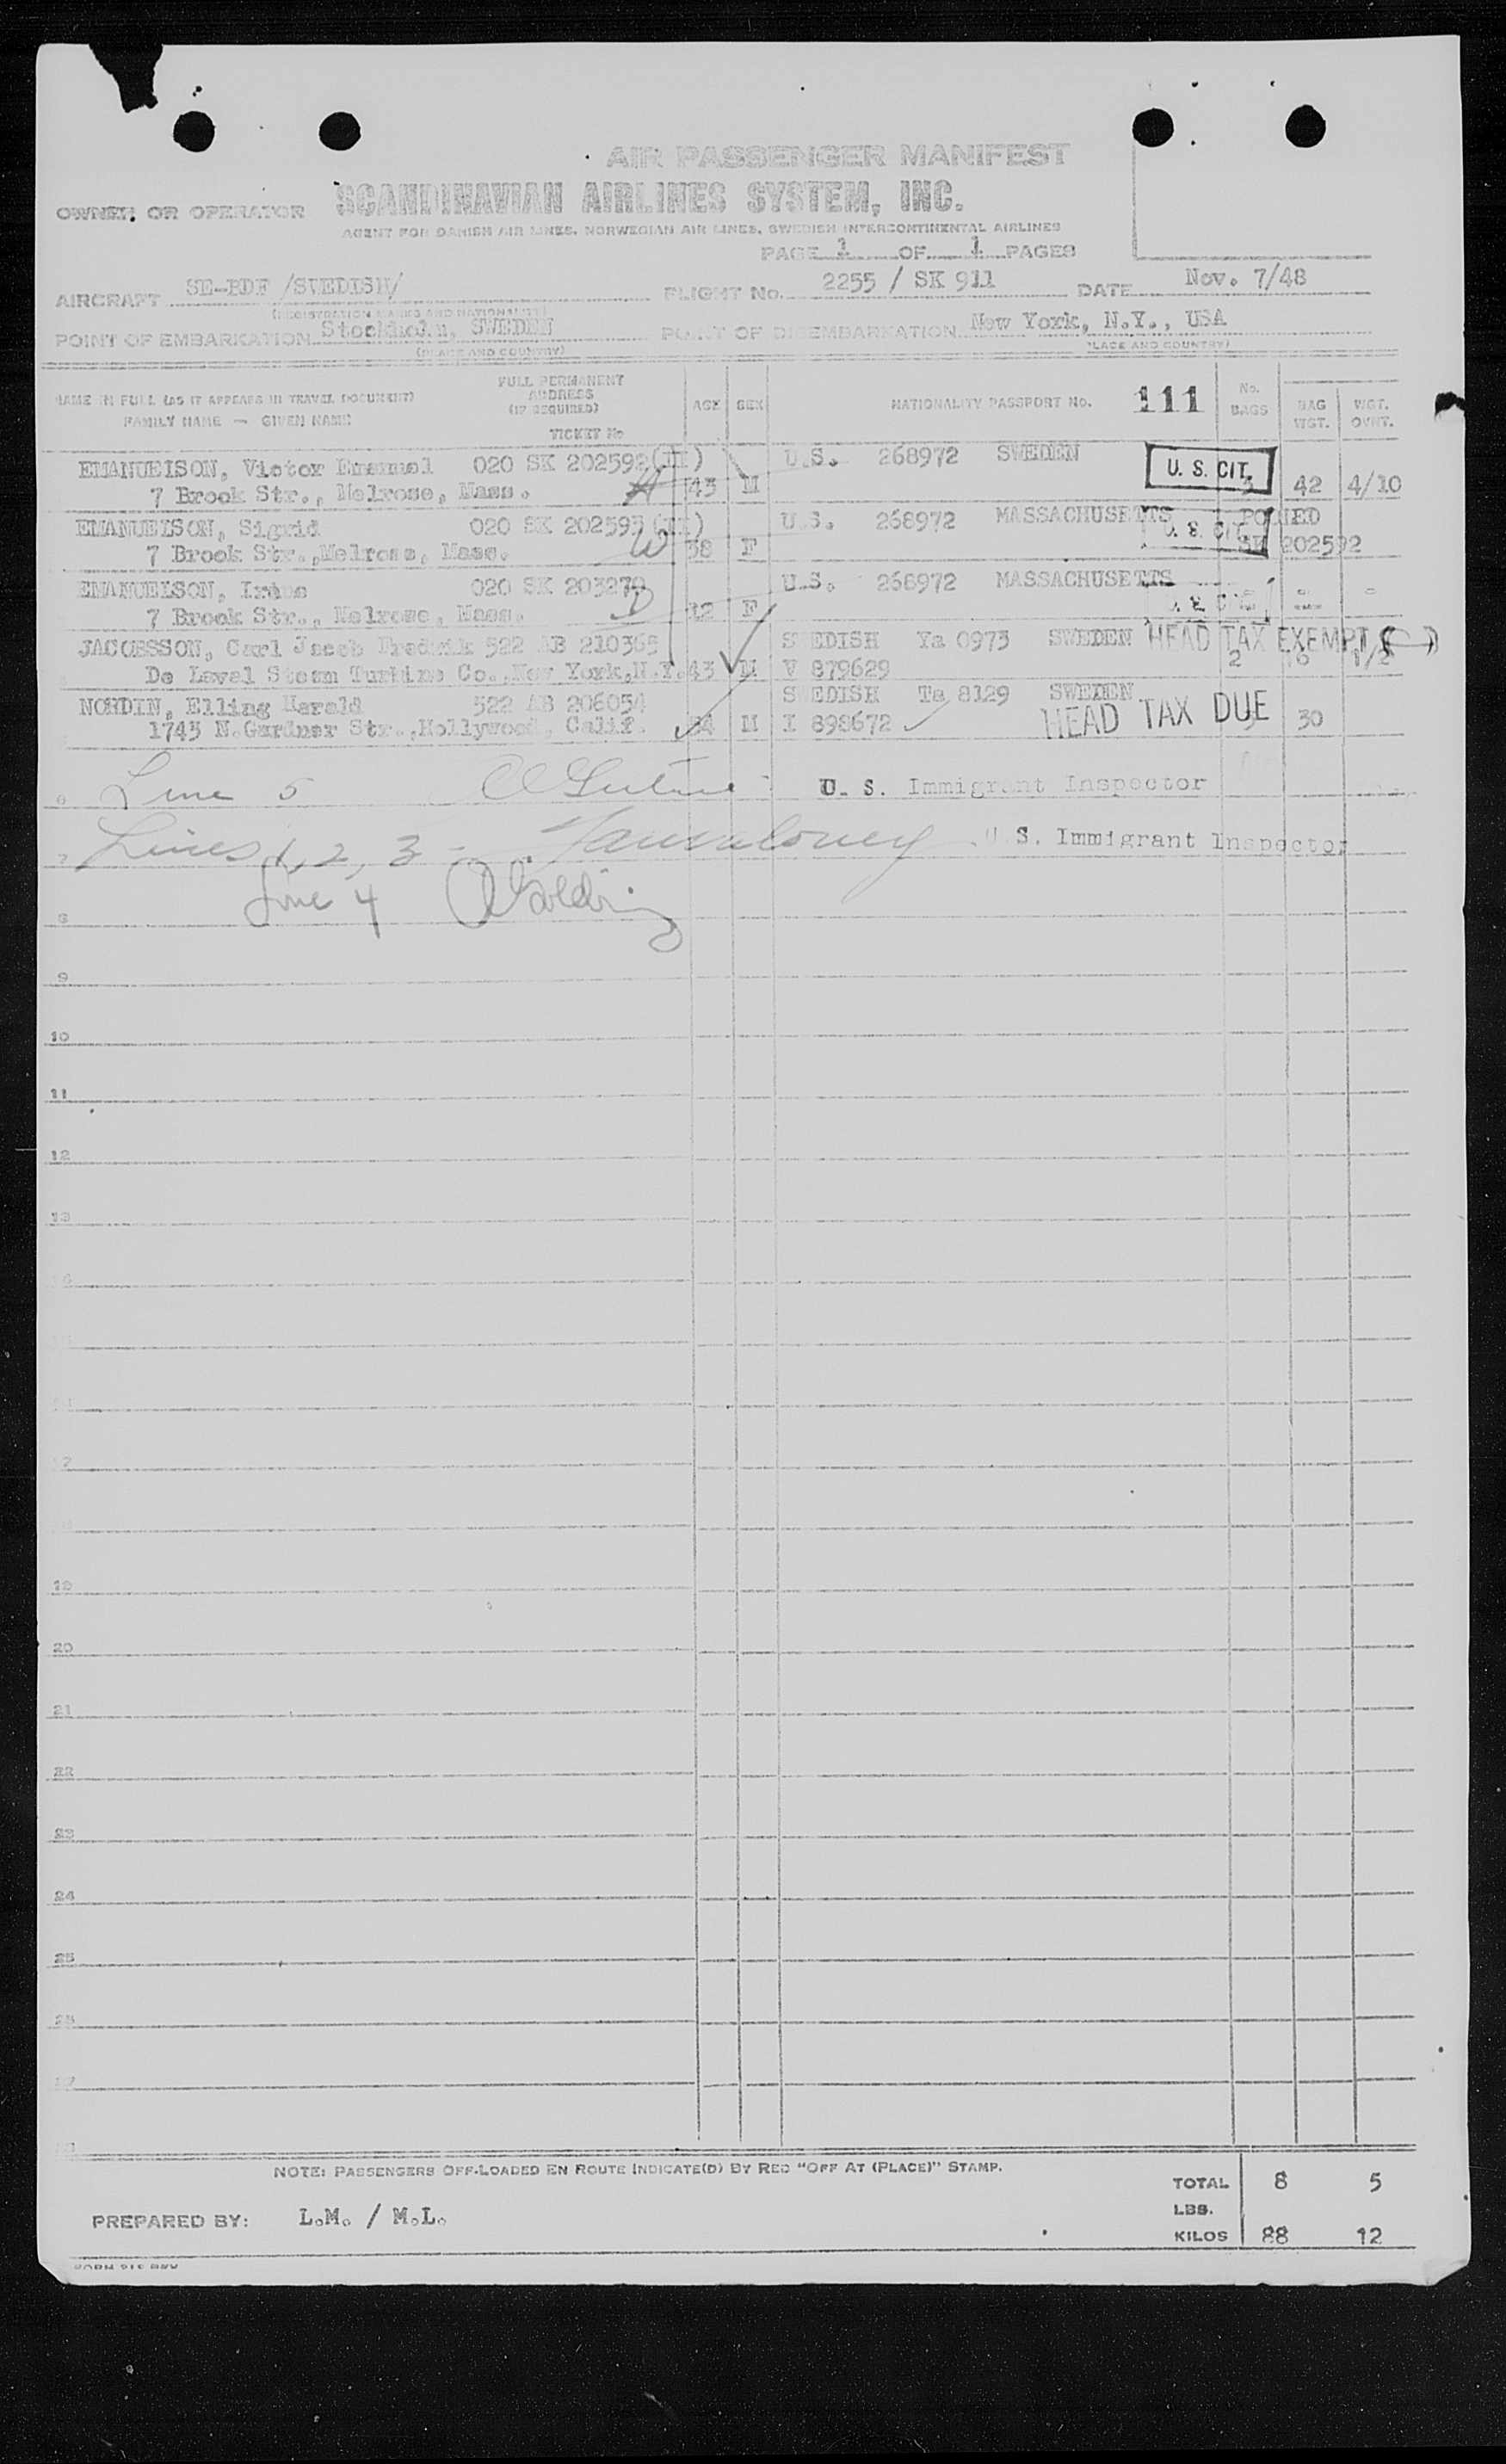 AIR PASSENGER MANIFEST
OWNER OR OPERATOR SCANDINAVIAN AIRLINES SYSTEM, INC.
AGENT FOR DANISH AIR LINES, NORWEGIAN AIR LINES, SWEDISH INTERCONTINENTAL AIRLINES
PAGE 1 OF 1 PAGES
AIRCRAFT SE-BDF /SWEDISH/ FLIGHT No. 2255 / SK 911 DATE Nov. 7/48
(REGISTRATION MARKS AND NATIONALITY)
POINT OF EMBARKATION Stockholm, SWEDEN POINT OF DISEMBARKATION New York, N.Y., USA
(PLACE AND COUNTRY) (PLACE AND COUNTRY)
NAME IN FULL (AS IT APPEARS IN TRAVEL DOCUMENT) FULL PERMANENT ADDRESS (IF REQUIRED) AGE SEX NATIONALITY PASSPORT No. 111 No. BAGS BAG WGT. WGT. OVWT.
FAMILY NAME — GIVEN NAME TICKET No
EMANUELSON, Victor Emanuel 020 SK 202592(II) U.S. 268972 SWEDEN U. S. CIT.
7 Brook Str., Melrose, Mass. H 43 M 3 42 4/10
EMANUELSON, Sigrid 020 SK 202593(II) U.S. 268972 MASSACHUSETTS U. S. CIT. POOLED
7 Brook Str., Melrose, Mass. W 38 F SK 202592
EMANUELSON, Irene 020 SK 203279 U.S. 268972 MASSACHUSETTS
7 Brook Str., Melrose, Mass. D 12 F - - -
JACOBSSON, Carl Jacob Fredrik 522 AB 210365 SWEDISH Ya 0973 SWEDEN HEAD TAX EXEMPT ( )
De Laval Steam Turbine Co., New York, N.Y. 43 M V 879629 2 1/2
NORDIN, Elling Harald 522 AB 206054 SWEDISH Ta 8129 SWEDEN
1743 N. Gardner Str., Hollywood, Calif. M I 898672 HEAD TAX DUE 3 30
6 Line 5 U. S. Immigrant Inspector
7 Lines 1, 2, 3 - U. S. Immigrant Inspector
8 Line 4
9
10
11
12
13
19
20
21
22
23
24
25
26
27
NOTE: PASSENGERS OFF-LOADED EN ROUTE INDICATE(D) BY RED "OFF AT (PLACE)" STAMP.
TOTAL 8 5
LBS.
PREPARED BY: L.M. / M.L.
KILOS 88 12